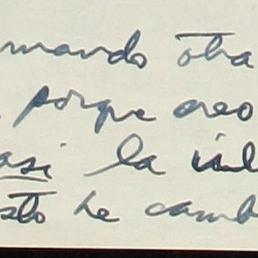 rmando otra
porque creo
asi la
sto he camb